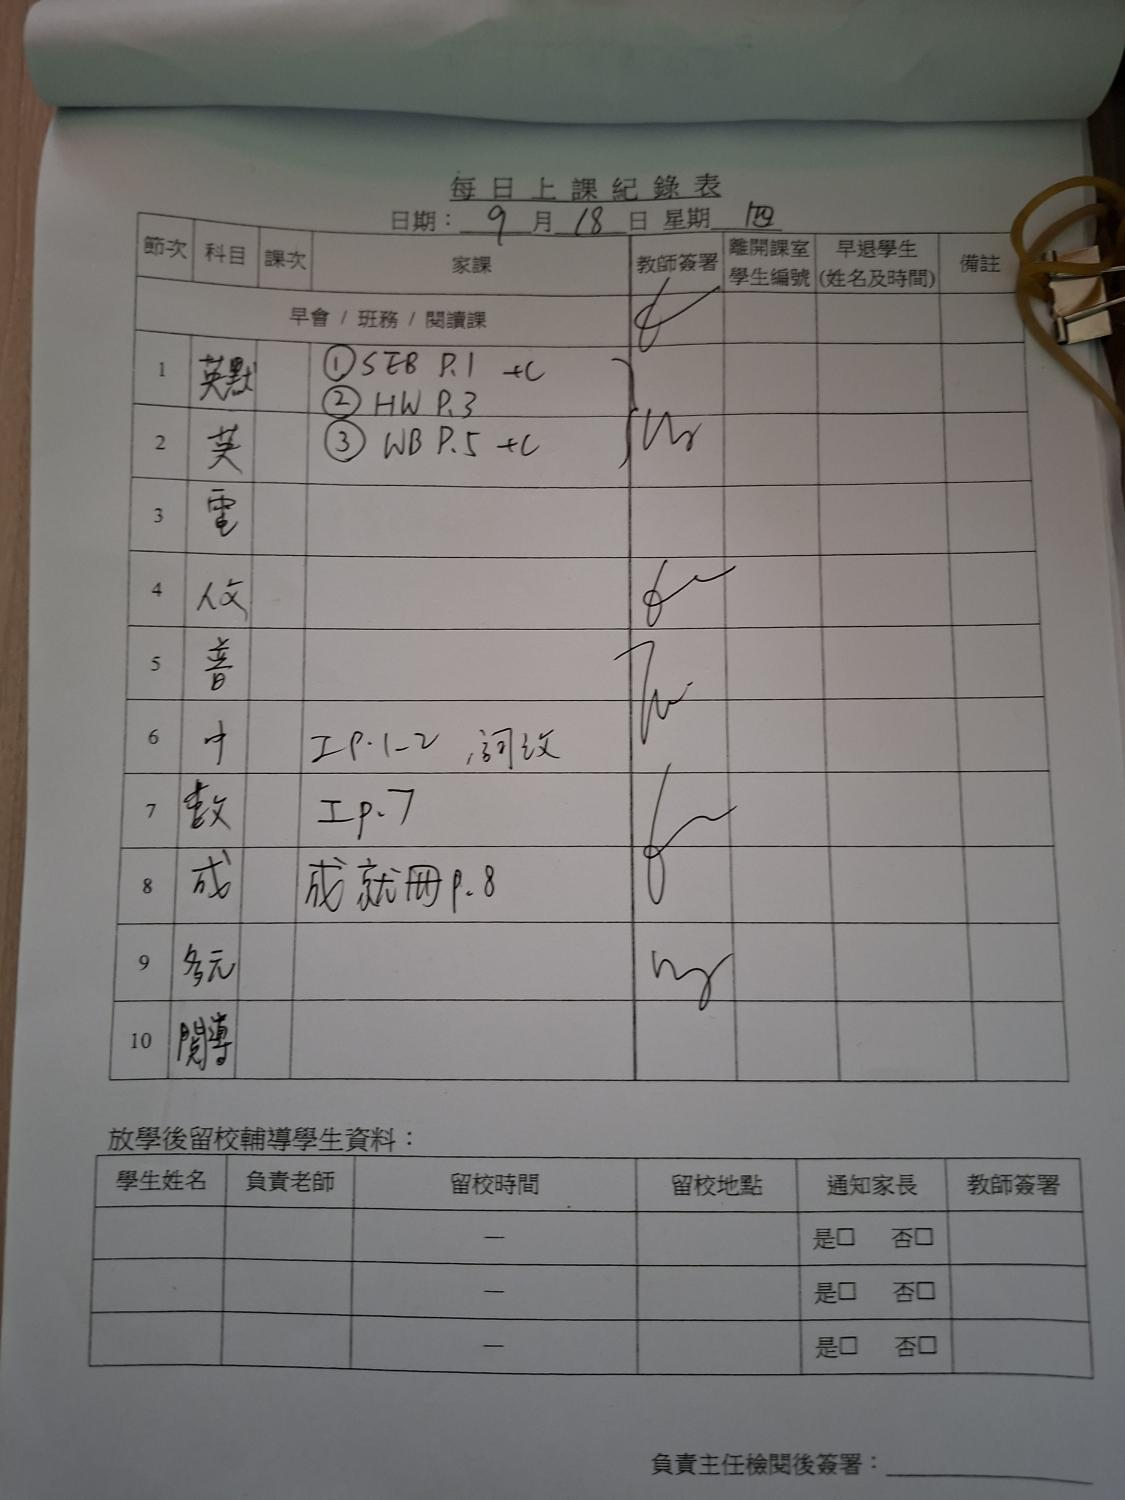 每日上課紀錄表
日期：9月18日 星期四
節次 科目 課次 家課 教師簽署 離開課室學生編號 早退學生(姓名及時間) 備註
早會 / 班務 / 閱讀課
1 英默 ① SEB P.1 +C
② HW P.3
2 英 ③ WB P.5 +C
3 電
4 人文
5 普
6 中 工P.1-2 , 詞改
7 數 工p.7
8 成 成就冊p.8
9 多元
10 閱導
放學後留校輔導學生資料：
學生姓名 負責老師 留校時間 留校地點 通知家長 教師簽署
— 是□ 否□
— 是□ 否□
— 是□ 否□
負責主任檢閱後簽署：